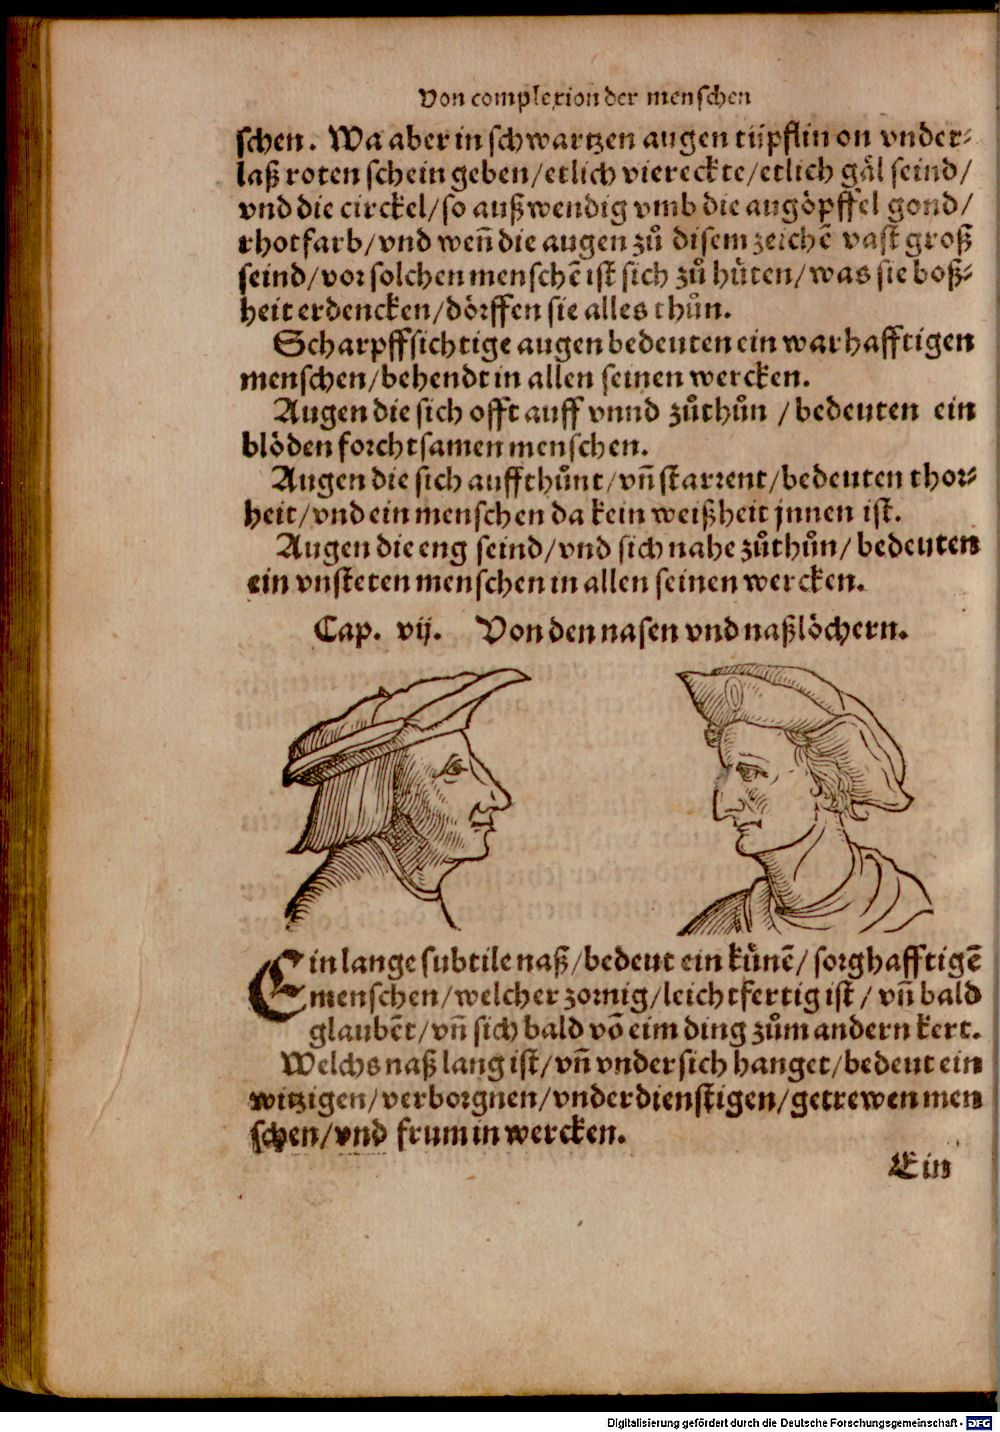 Von complexion der menschen
schen. Wa aber in schwartzen augen tüpflin on vnder⸗
laß roten schein geben/etlich viereckte/etlich gaͤl seind/
vnd die circkel/so außwendig vmb die augoͤpffel gond/
rhotfarb/vnd weñ die augen zuͦ disem zeichē vast groß
seind/vor solchen menschē ist sich zuͦ huͤten/was sie boß⸗
heit erdencken/doͤrffen sie alles thuͦn.
Scharpffsichtige augen bedeuten ein warhafftigen
menschen/behendt in allen seinen wercken.
Augen die sich offt auff vnnd zuͦthuͦn /bedeuten ein
bloͤden forchtsamen menschen.
Augen die sich auffthuͦnt/vñ starrent/bedeuten thor⸗
heit/vnd ein menschen da kein weißheit jnnen ist.
Augen die eng seind/vnd sich nahe zuͦthuͦn/bedeuten
ein vnsteten menschen in allen seinen wercken.
Cap. vij. Von den nasen vnd naßloͤchern.
Ein lange subtile naß/bedeut ein kuͤnē/sorghafftigē
menschen/welcher zornig/leichtfertig ist/vñ bald
glaubēt/vñ sich bald võ eim ding zuͦm andern kert.
Welchs naß lang ist/vñ vndersich hanget/bedeut ein
witzigen/verborgnen/vnderdienstigen/getrewen men
schen/vnd frum in wercken.
Ein
Digitalisierung gefördert durch die Deutsche Forschungsgemeinschaft - DFG